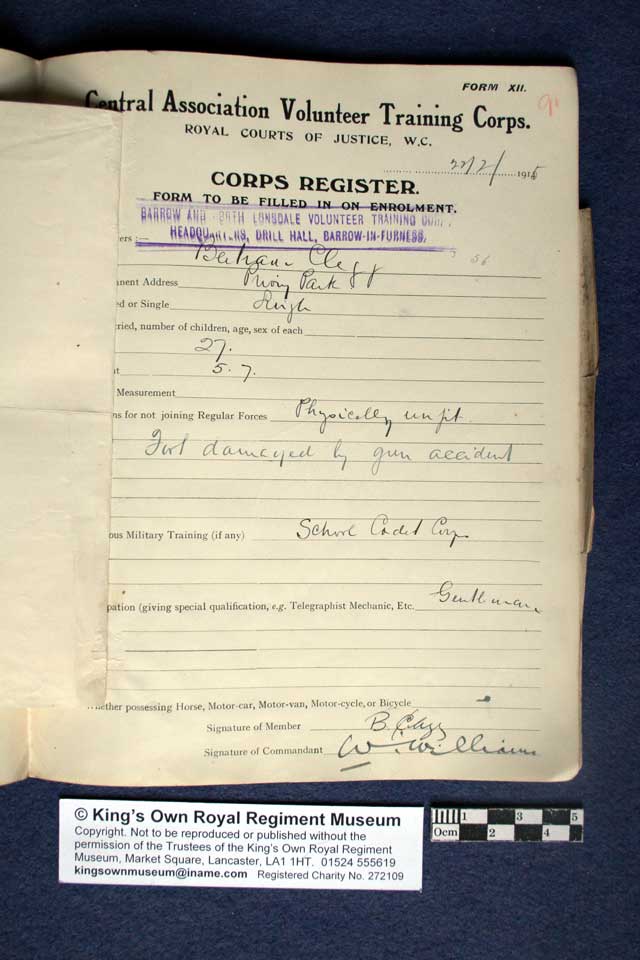 FORM XII.
91
Central Association Volunteer Training Corps.
ROYAL COURTS OF JUSTICE, W.C.
22/2/ 1915
CORPS REGISTER.
FORM TO BE FILLED IN ON ENROLMENT.
BARROW AND NORTH LONSDALE VOLUNTEER TRAINING CORPS
HEADQUARTERS, DRILL HALL, BARROW-IN-FURNESS.
ers :— Bertram Clegg
56
nent Address Priory Park
ed or Single Single
rried, number of children, age, sex of each
27.
t 5. 7.
Measurement
ns for not joining Regular Forces Physically unfit
Foot damaged by gun accident
ous Military Training (if any) School Cadet Corps
pation (giving special qualification, e.g. Telegraphist Mechanic, Etc. Gentleman
Whether possessing Horse, Motor-car, Motor-van, Motor-cycle, or Bicycle
Signature of Member B. Clegg
Signature of Commandant W. Williams
© King's Own Royal Regiment Museum
Copyright. Not to be reproduced or published without the
permission of the Trustees of the King's Own Royal Regiment
Museum, Market Square, Lancaster, LA1 1HT. 01524 555619
kingsownmuseum@iname.com Registered Charity No. 272109
1 3 5
0cm 2 4